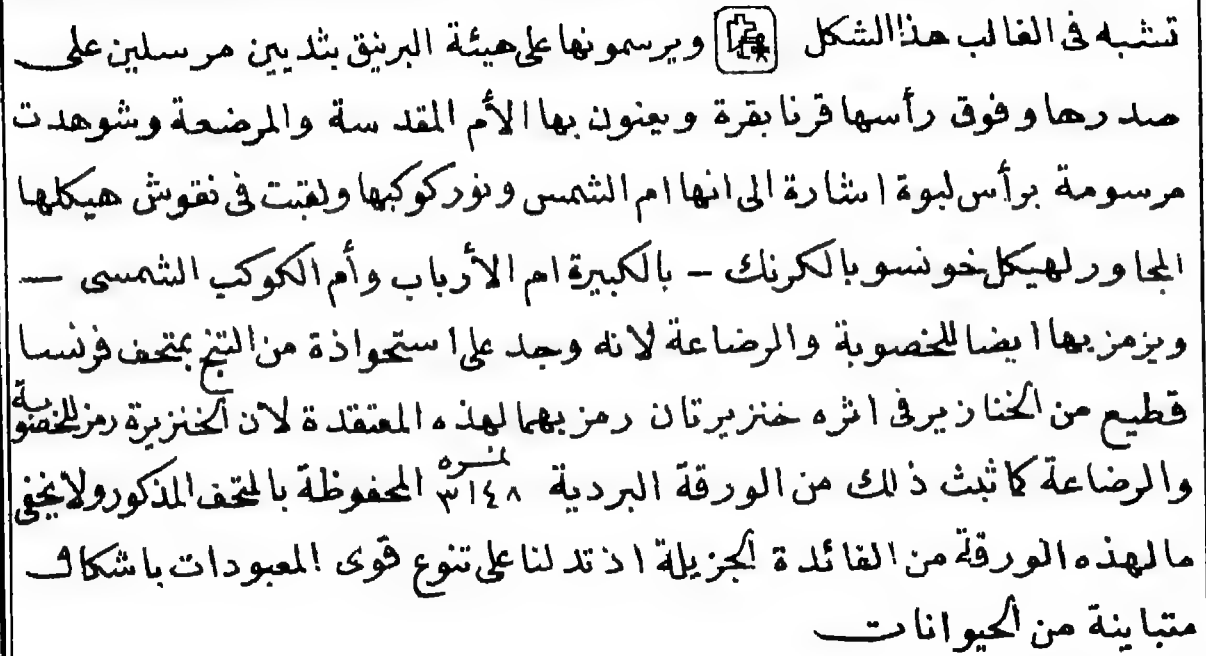 تشبه فى الغالب هذا الشكل ويرسمونها على هيئة البرنيق بثديين مرسلين على
صدرها وفوق رأسها قرنا بقرة ويعنون بها الأم المقدسة والمرضعة وشوهدت
مرسومة برأس لبوة اشارة الى انها ام الشمس ونور كوكبها ولقبت فى نقوش هيكلها
المجاور لهيكل خونسو بالكرنك – بالكبيرة ام الأرباب وأم الكوكب الشمسى —
ويزمز بها ايضا للخصوبة والرضاعة لانه وجد على استحواذة من التبخ بمتحف فرنسا
قطيع من الخنازير فى اثره خنزيرتان رمز بهما لهذه المعتقدة لان الخنزيرة رمز للخصوبة
والرضاعة كما ثبث ذلك من الورقة البردية نمره ٣١٤٨ المحفوظة بالمتحف المذكور ولا يخفى
ما لهذه الورقة من الفائدة الجزيلة اذ تدلنا على تنوع قوى المعبودات باشكال
متباينة من الحيوانات